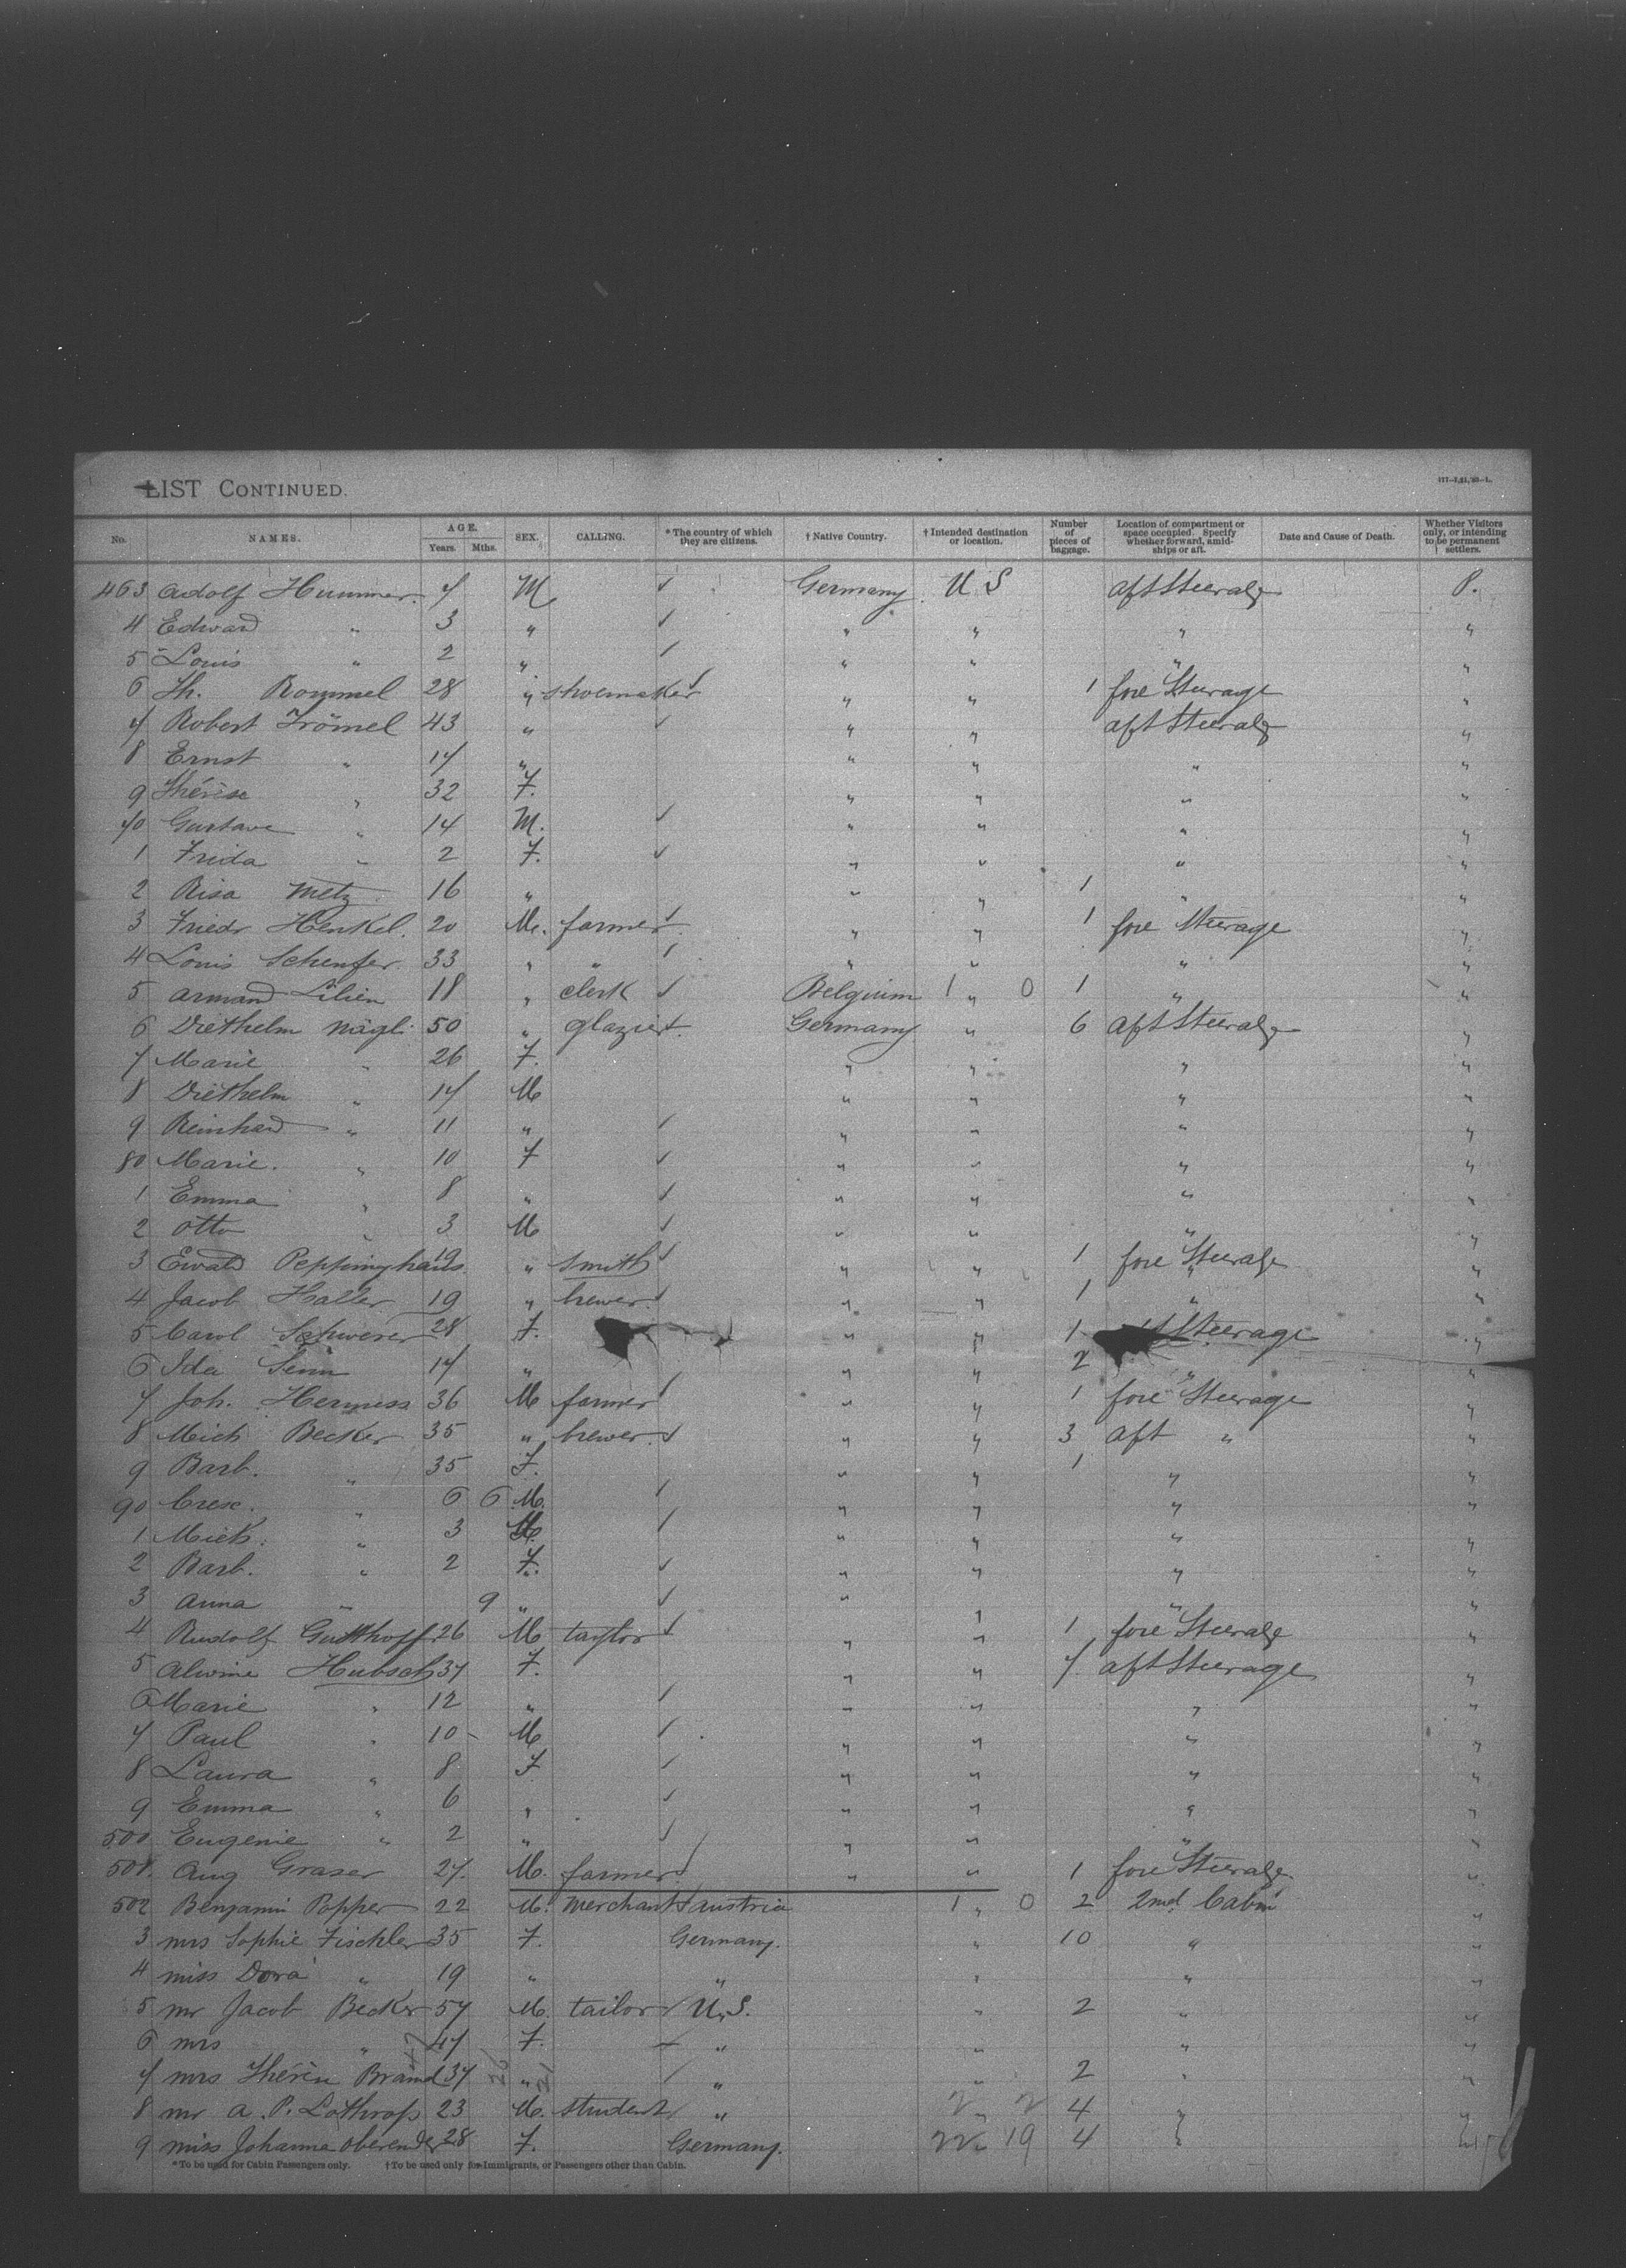 LIST CONTINUED.
No. NAMES. AGE. Years. Mths. SEX. CALLING. * The country of which they are citizens. † Native Country. † Intended destination or location. Number of pieces of baggage. Location of compartment or space occupied. Specify whether forward, amidships or aft. Date and Cause of Death. Whether Visitors only, or intending to be permanent settlers.
463 Adolf Hummer. 7 M ✓ Germany U S aft Steerage P.
4 Edward " 3 " ✓ " " " "
5 Louis " 2 " ✓ " " " "
6 Th. Rommel 28 " shoemaker ✓ " " 1 fore Steerage "
7 Robert Frömel 43 " ✓ " " aft Steerage "
8 Ernst " 17 " " " " "
9 Thérèse " 32 F. " " " "
70 Gustave " 14 M. ✓ " " " "
1 Frida " 2 F. ✓ " " " "
2 Risa Metz 16 " " " 1 " "
3 Friedr Henkel. 20 M. farmer ✓ " " 1 fore Steerage "
4 Louis Schenfer 33 " " ✓ " " " "
5 Armand Lilien 18 " clerk ✓ Belgium 1 " 0 1 " "
6 Diethelm Nägli 50 " glazier. Germany " 6 aft Steerage "
7 Marie " 26 F. " " " "
8 Diethelm " 17 M " " " "
9 Reinhard " 11 " ✓ " " " "
80 Marie. " 10 F ✓ " " " "
1 Emma " 8 " ✓ " " " "
2 Otto " 3 M ✓ " " " "
3 Ewald Peppinghaus. 19 " smith ✓ " " 1 fore Steerage "
4 Jacob Haller 19 " brewer. ✓ " " 1 " "
5 Carol Schwerer 28 F. " " 1 Steerage "
6 Ida Senn 17 " " " 2 " "
7 Joh. Hermess 36 M farmer ✓ " " 1 fore Steerage "
8 Mich Becker 35 " brewer. ✓ " " 3 aft " "
9 Barb. " 35 F. " " 1 " "
90 Cresc. " 6 6 M. ✓ " " " "
1 Mich. " 3 M. ✓ " " " "
2 Barb. " 2 F. ✓ " " " "
3 Anna " 9 " ✓ " " " "
4 Rudolf Gutthoff 26 M taylor ✓ " " 1 fore Steerage "
5 Alwine Hubsch 37 F. " " 7. aft Steerage "
6 Marie " 12 " ✓ " " " "
7 Paul " 10 - M ✓ " " " "
8 Laura " 8 F ✓ " " " "
9 Emma " 6 " ✓ " " " "
500 Eugenie " 2 " ✓ " " " "
501. Aug Graser 27. M. farmer ✓ " " 1 fore Steerage "
502 Benjamin Popper 22 M. merchant Austria 1 " 0 2 2nd Cabin "
3 mrs Sophie Fischler 35 F. Germany. " 10 " "
4 miss Dora " 19 " " " " "
5 mr Jacob Becker 57 M. tailor U.S. " 2 " "
6 mrs " 47 F. " " " "
7 mrs Thérèse Brand 37 " " " 2 " "
8 mr A. P. Lothrop 23 M. student " 2 " 2 4 " "
9 miss Johanna Oberender 28 F. Germany. 22 " 19 4 " "
*To be used for Cabin Passengers only. †To be used only for Immigrants, or Passengers other than Cabin.